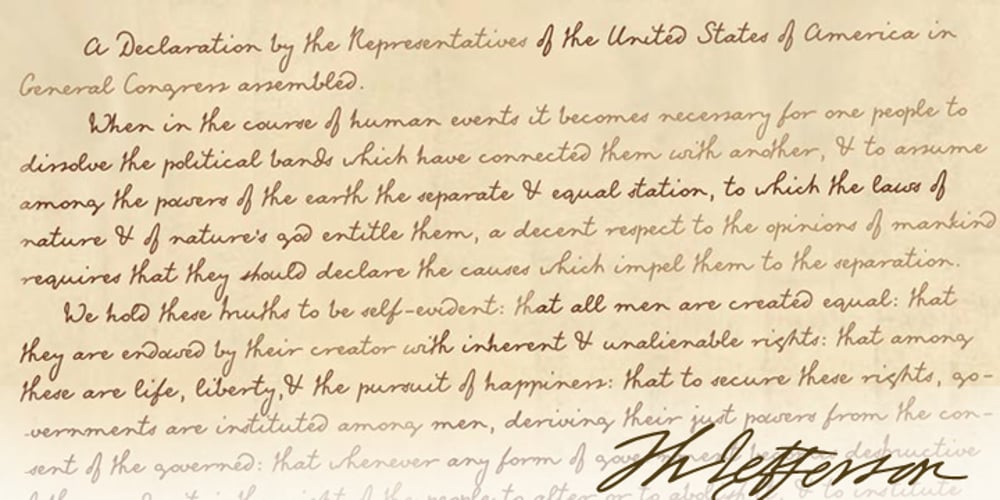 A Declaration by the Representatives of the United States of America in
General Congress assembled.
When in the course of human events it becomes necessary for one people to
dissolve the political bands which have connected them with another, & to assume
among the powers of the earth the separate & equal station, to which the laws of
nature & of nature's god entitle them, a decent respect to the opinions of mankind
requires that they should declare the causes which impel them to the separation.
We hold these truths to be self-evident: that all men are created equal: that
they are endowed by their creator with inherent & unalienable rights: that among
these are life, liberty, & the pursuit of happiness: that to secure these rights, go-
-vernments are instituted among men, deriving their just powers from the con-
sent of the governed: that whenever any form of government becomes destructive
people to alter or to abolish it, & to institute
Th Jefferson